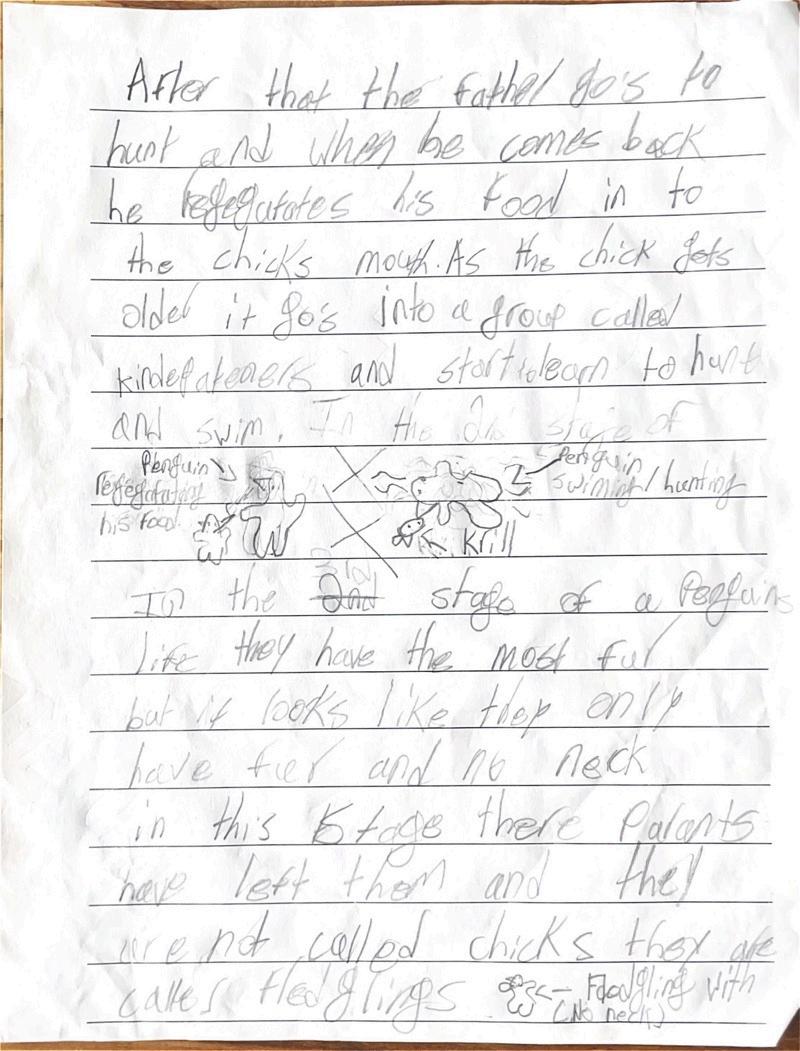 After that the father go's to
hunt and when he comes back
he regegatates his food in to
the chicks mouth. As the chick gets
older it go's into a group called
kindegateners and start to learn to hunt
and swim. In the 2nd stage of
Penguin
regegatating
his food
Penguin
swiming/hunting
Krill
In the 2nd 3rd stage of a Penguins
life they have the most fur
but it looks like they only
have fur and no neck
in this stage there Parants
have left them and they
are not called chicks they are
calles fledglings
Fleadgling with
(No neck)